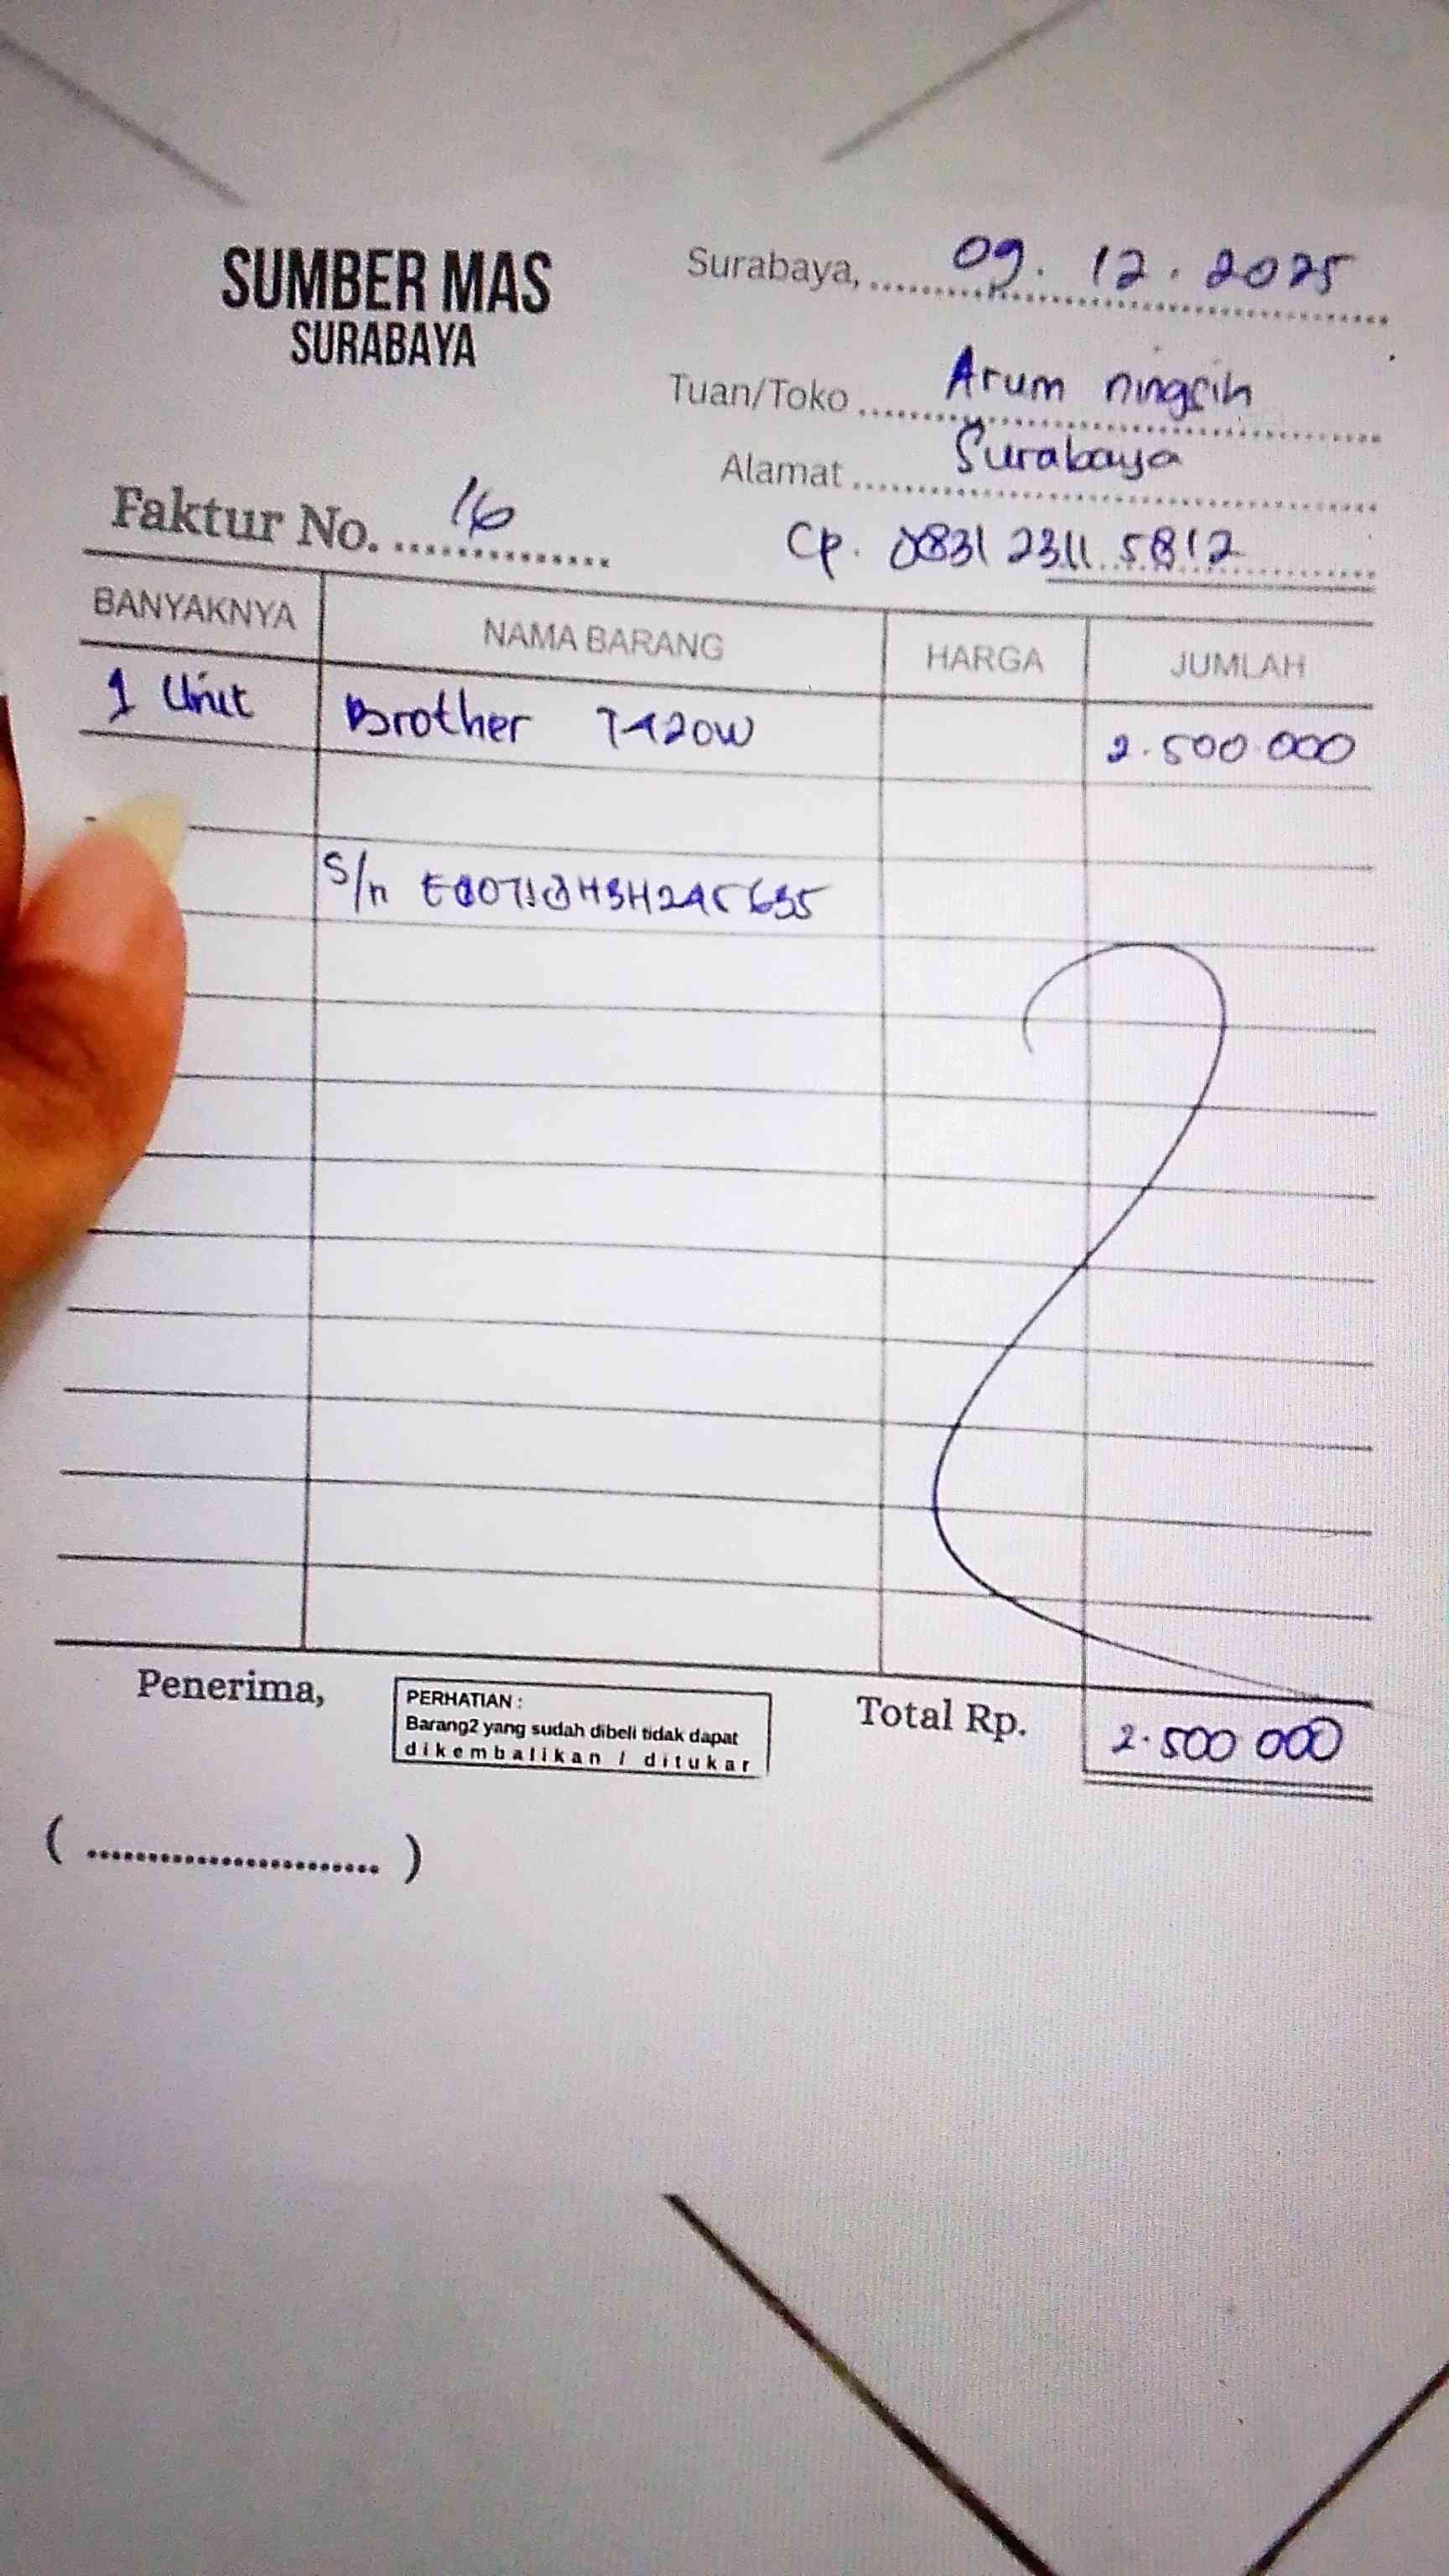 SUMBER MAS
SURABAYA
Surabaya, 09.12.2025
Tuan/Toko Arum ningsih
Alamat Surabaya
Faktur No. 16
Cp. 0831 2311 5812
BANYAKNYA NAMA BARANG HARGA JUMLAH
1 Unit Brother T420W 2.500.000
S/n
Penerima,
PERHATIAN :
Barang2 yang sudah dibeli tidak dapat
dikembalikan / ditukar
Total Rp. 2.500 000
(........................)